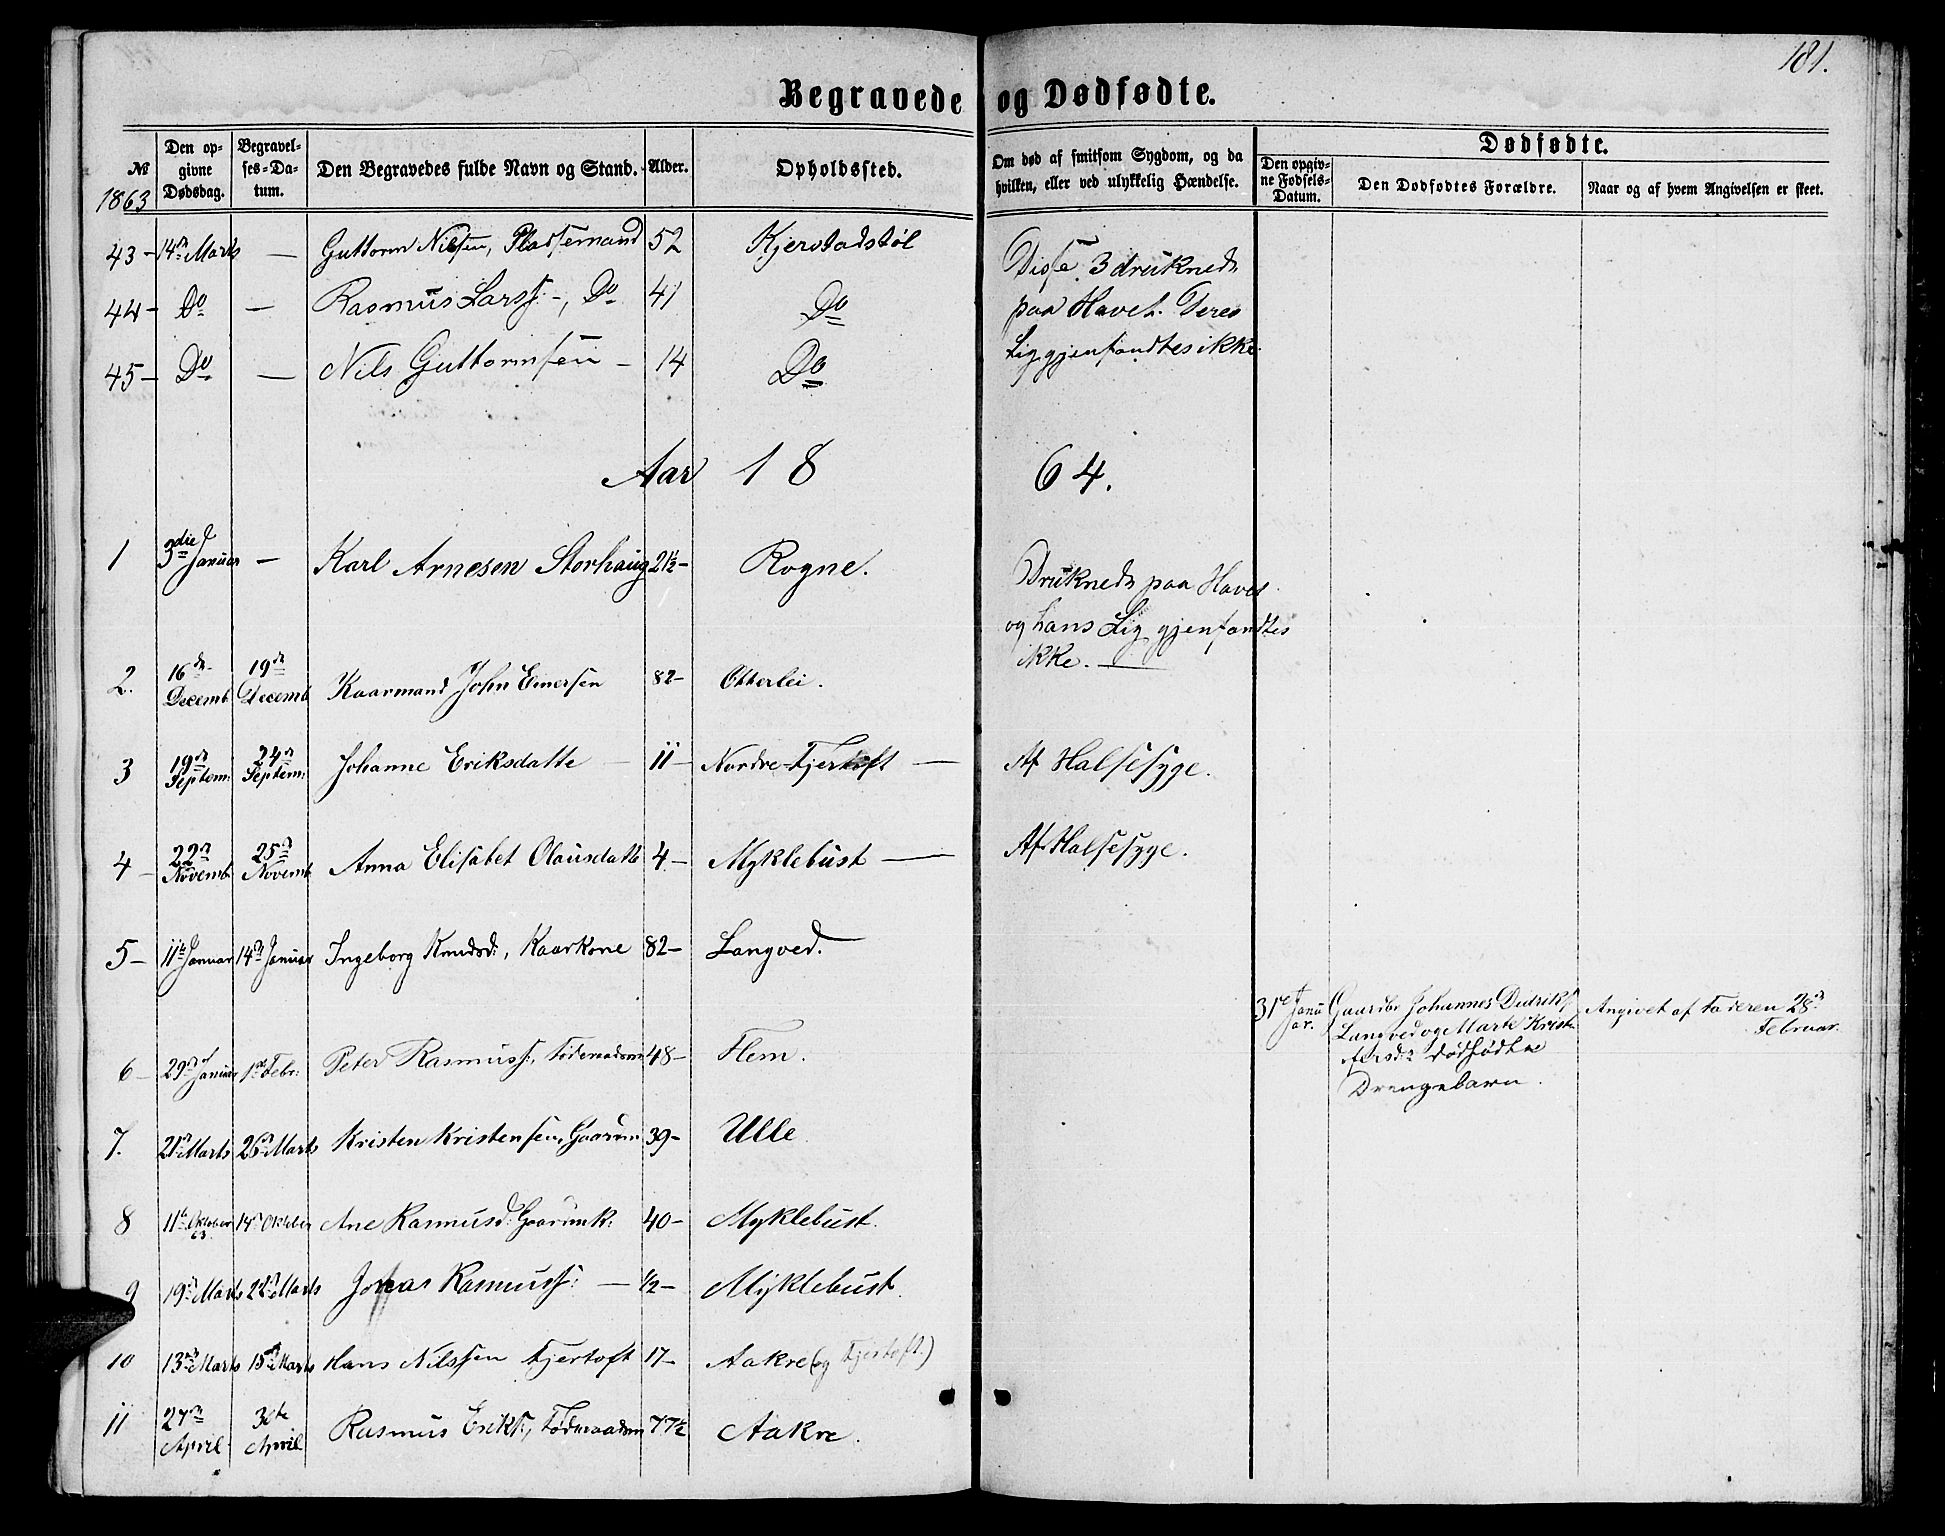 181.
Begravede og Dødfødte.
№ 1863
Den opgivne Dødsdag.
Begravelses-Datum.
Den Begravedes fulde Navn og Stand.
Alder.
Opholdssted.
Om død af smitsom Sygdom, og da hvilken, eller ved ulykkelig Hændelse.
Dødfødte.
Den opgivne Fødsels-Datum.
Den Dødfødtes Forældre.
Naar og af hvem Angivelsen er skeet.
43 - 14de Marts — Guttorm Nilsen, Pladsemand 52 Kjerstadstøl
44 - Do — Rasmus Larss: -, Do 41 Do
45 - Do — Nils Guttormsen - 14 Do
Disse 3 druknede
paa Havet. Deres
Lig gjenfandtes ikke.
Aar 18 64.
1 3die Januar — Karl Arnesen Storhaug 21½ - Rogne.
Druknede paa Havet
og hans Lig gjenfandtes
ikke. —
2. 16de Decemb. 19de Decemb Kaarmand John Emersen 82 - Otterlei.
3 19de Septem: 24de Septem: Johanne Eriksdatte — 11 - Nordre-Fjertoft — Af Halsesyge.
4 - 22de Novemb. 25de Novemb Anna Elisabet Olausdatte 4 - Myklebust — Af Halsesyge.
5 - 11te Januar 14de Januar Ingeborg Knudsd:, Kaarkone 82 - Langved.
31te Januar. Gaardbr Johannes Didriks. Angivet af Faderen 28de
Langved og Marte Krist Februar.
dødfødte
Drengebarn.
6 - 29de Januar 1ste Febr: Peter Rasmuss:, Føderaadsm 48 - Flem.
7. 21de Marts 26de Marts Kristen Kristensen, Gaardm 39 - Ulle
8 11te Oktober 63. 14de Oktober Ane Rasmusd: Gaardmk: 40 - Myklebust.
9 19de Marts 22de Marts Jonas Rasmuss: — ½ - Myklebust.
10 13de Marts 15de Marts Hans Nilssen Fjertoft 17 - Aakre (og Fjertoft.)
11 27de April 30te April Rasmus Eriks:, Føderaadsm 77½ Aakre.